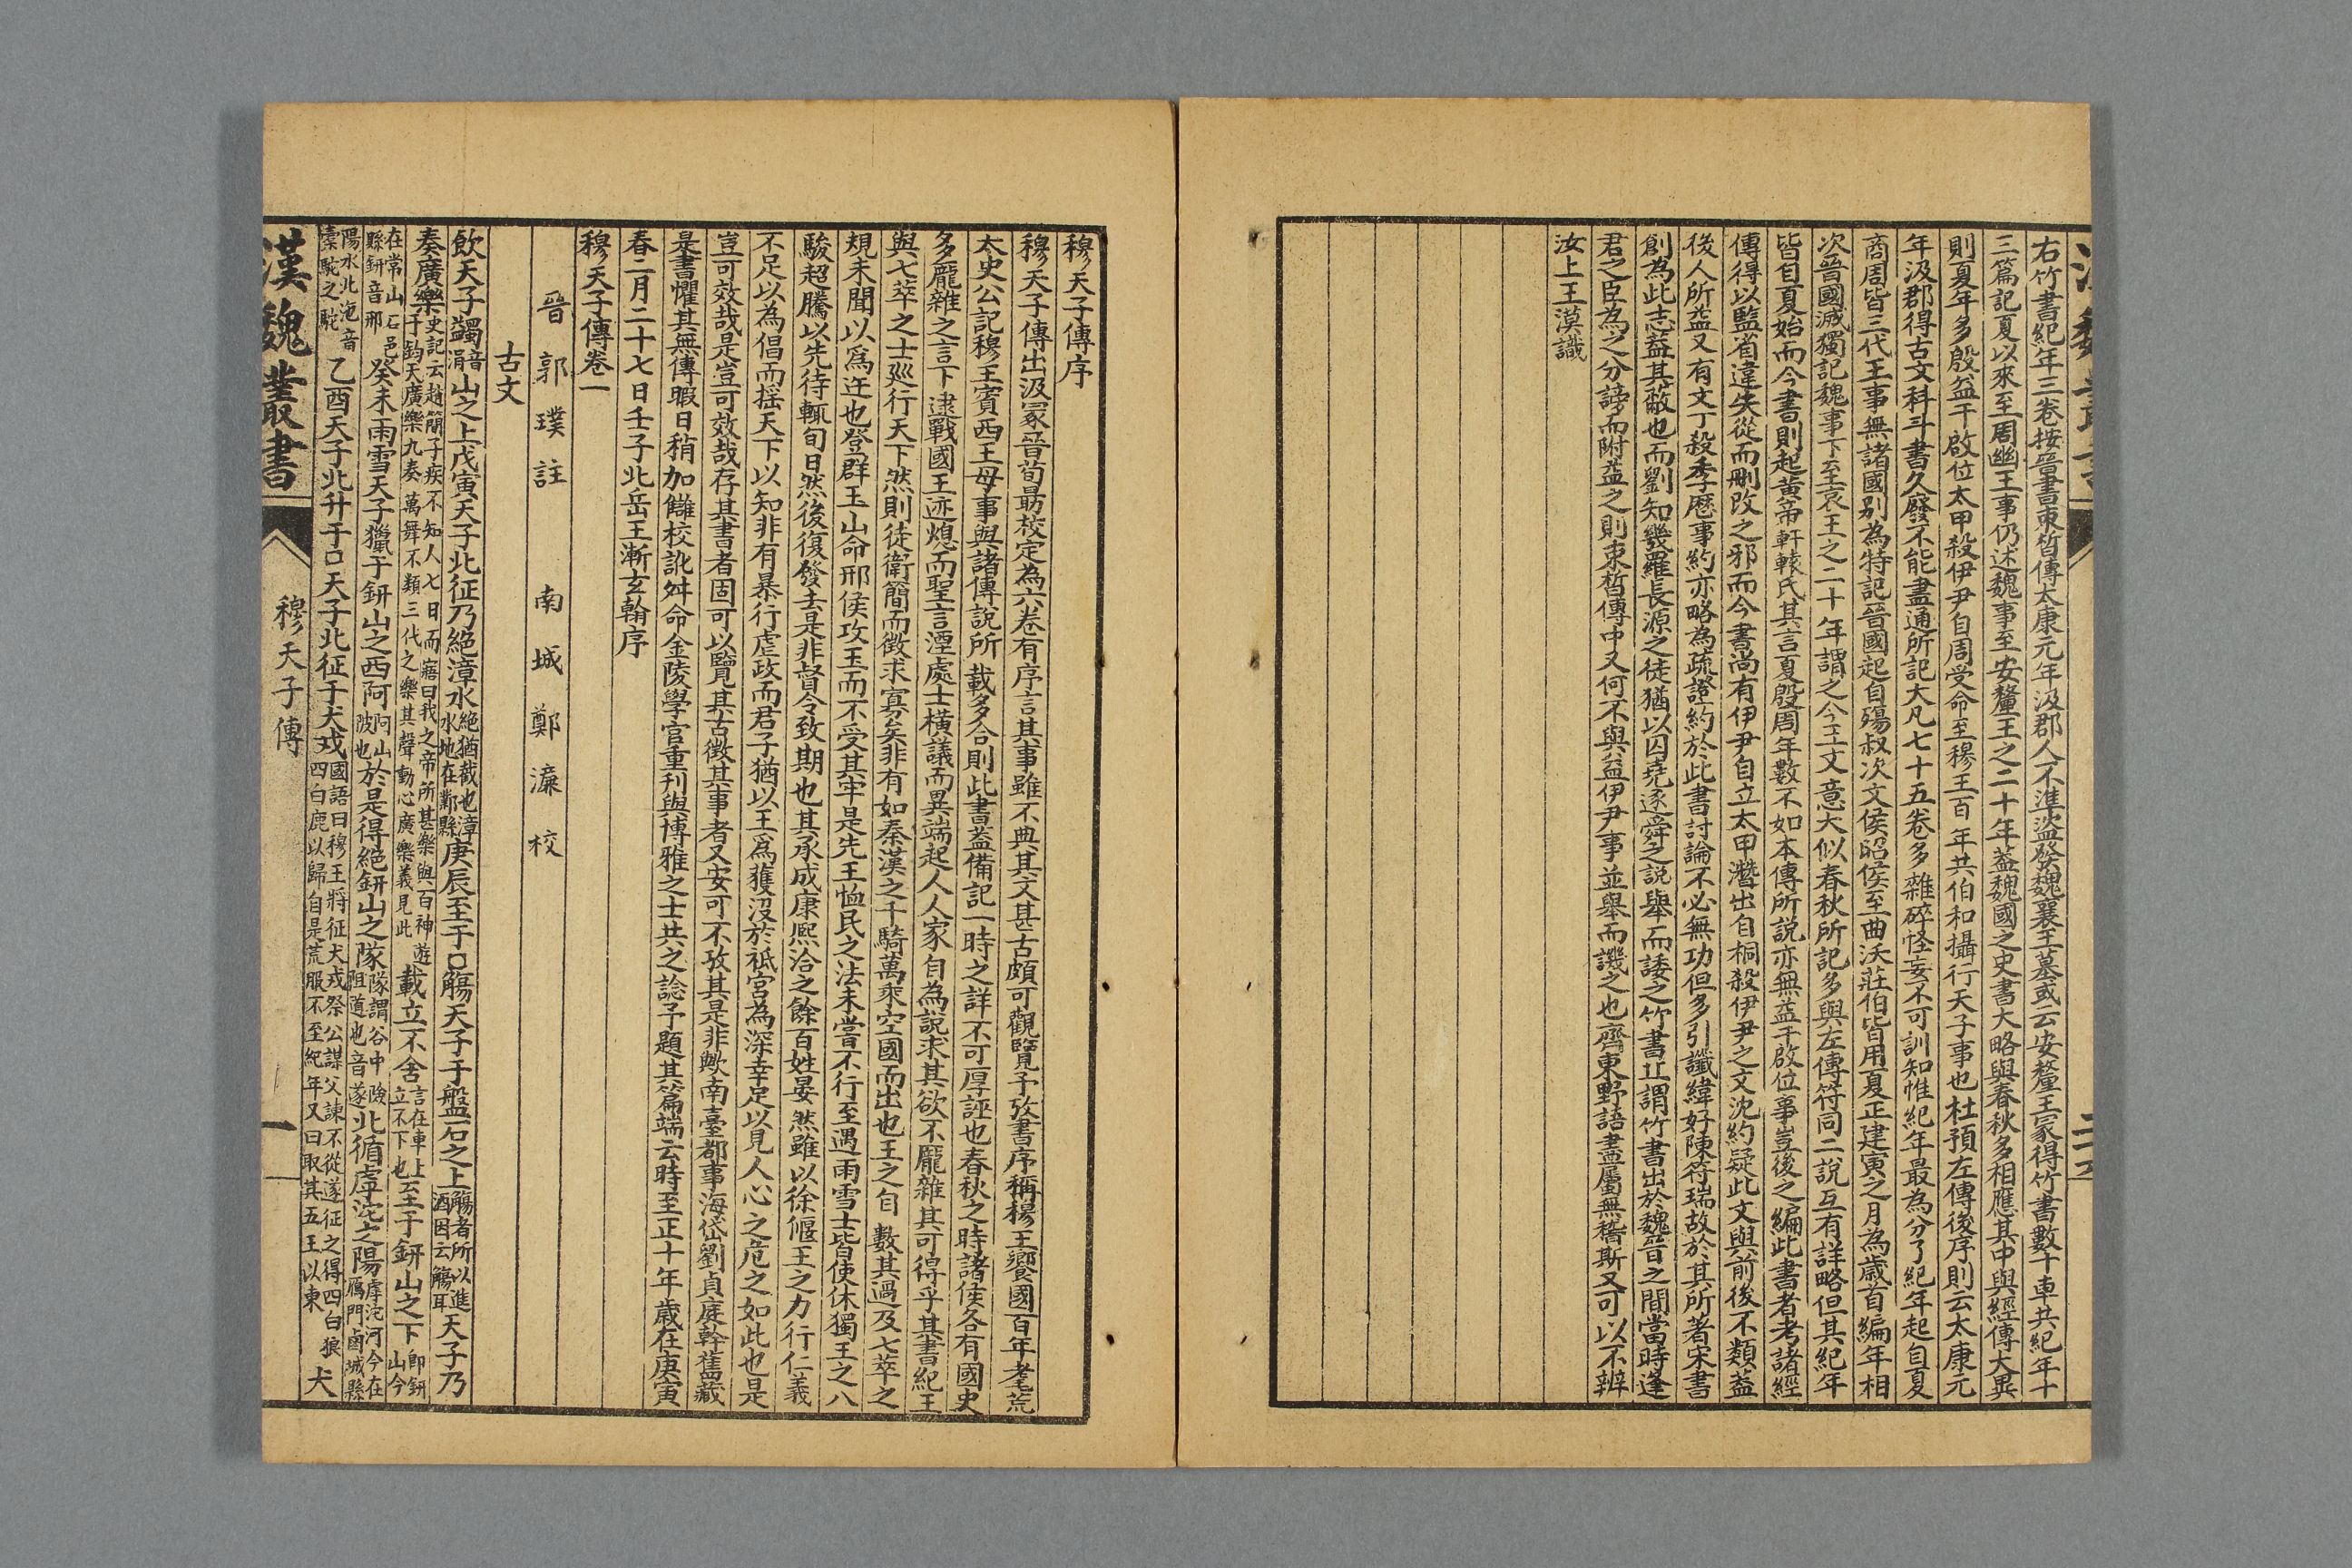 右竹書紀年三卷按晉書束晳傳太康元年汲郡人不準盜發魏襄王墓或云安釐王冢得竹書數十車共紀年十
三篇記夏以來至周幽王事仍述魏事至安釐王之二十年葢魏國之史書大略與春秋多相應其中與經傳大異
則夏年多殷益干啟位太甲殺伊尹自周受命至穆王百年共伯和攝行天子事也杜預左傳後序則云太康元
年汲郡得古文科斗書久廢不能盡通所記大凡七十五卷多雜碎怪妄不可訓知惟紀年最為分了紀年起自夏
商周皆三代王事無諸國別為特記晉國起自殤叔次文侯昭侯至曲沃莊伯皆用夏正建寅之月為歲首編年相
次晉國滅獨記魏事下至哀王之二十年謂之今王文意大似春秋所記多與左傳符同二說互有詳略但其紀年
皆自夏始而今書則起黃帝軒轅氏其言夏殷周年數不如本傳所說亦無益干啟位事豈後之編此書者考諸經
傳得以監省違失從而刪改之邪而今書尚有伊尹自立太甲潛出自桐殺伊尹之文沈約疑此文與前後不類葢
後人所益又有文丁殺季歷事約亦略為疏證約於此書討論不必無功但多引讖緯好陳符瑞故於其所著宋書
創為此志葢其敝也而劉知幾羅長源之徒猶以囚堯逐舜之說舉而諉之竹書豈謂竹書出於魏晉之間當時逢
君之臣為之分謗而附益之則束晳傳中又何不與益伊尹事並舉而譏之也齊東野語盡屬無稽斯又可以不辨
汝上王漠識
穆天子傳序
穆天子傳出汲冢晉荀勗校定為六卷有序言其事雖不典其文甚古頗可觀覽予攷書序稱穆王饗國百年耄荒
太史公記穆王賓西王母事與諸傳說所載多合則此書葢備記一時之詳不可厚誣也春秋之時諸侯各有國史
多龐雜之言下逮戰國王迹熄而聖言湮處士橫議而異端起人人家自為說求其欲不龐雜其可得乎其書紀王
與七萃之士巡行天下然則徒衛簡而徵求寡矣非有如秦漢之千騎萬乘空國而出也王之自數其過及七萃之
規未聞以爲迂也登群玉山命邢侯攻玉而不受其牢是先王恤民之法未嘗不行至遇雨雪士皆使休獨王之八
駿超騰以先待輒旬日然後復發去是非督令致期也其承成康熙洽之餘百姓晏然雖以徐偃王之力行仁義
不足以為倡而搖天下以知非有暴行虐政而君子猶以王爲獲沒於祗宮為深幸足以見人心之危之如此也是
豈可效哉是豈可效哉存其書者固可以覽其古徵其事者又安可不攷其是非歟南臺都事海岱劉貞庭幹舊藏
是書懼其無傳暇日稍加讎校訛舛命金陵學官重刊與博雅之士共之諗予題其篇端云時至正十年歲在庚寅
春二月二十七日壬子北岳王漸玄翰序
穆天子傳卷一
晉 郭璞 註 南城 鄭濂 校
古文
飲天子蠲音涓山之上戊寅天子北征乃絕漳水絕猶截也漳水地在鄴縣庚辰至于□觴天子于盤石之上觴者所以進酒因云觴耳天子乃
奏廣樂史記云趙簡子疾不知人七日而寤曰我之帝所甚樂與百神遊于鈞天廣樂九奏萬舞不類三代之樂其聲動心廣樂義見此載立不舍言在車上立不下也至于鈃山之下即鈃山今
在常山石邑縣鈃音邢癸未雨雪天子獵于鈃山之西阿阿山陂也於是得絕鈃山之隊隊謂谷中險阻道也音遂北循虖沱之陽虖沱河今在鴈門鹵城縣
陽水北沱音橐駝之駝乙酉天子北升于□天子北征于犬戎國語曰穆王將征犬戎祭公謀父諫不從遂征之得四白狼四白鹿以歸自是荒服不至紀年又曰取其五王以東犬
漢魏叢書 穆天子傳 一